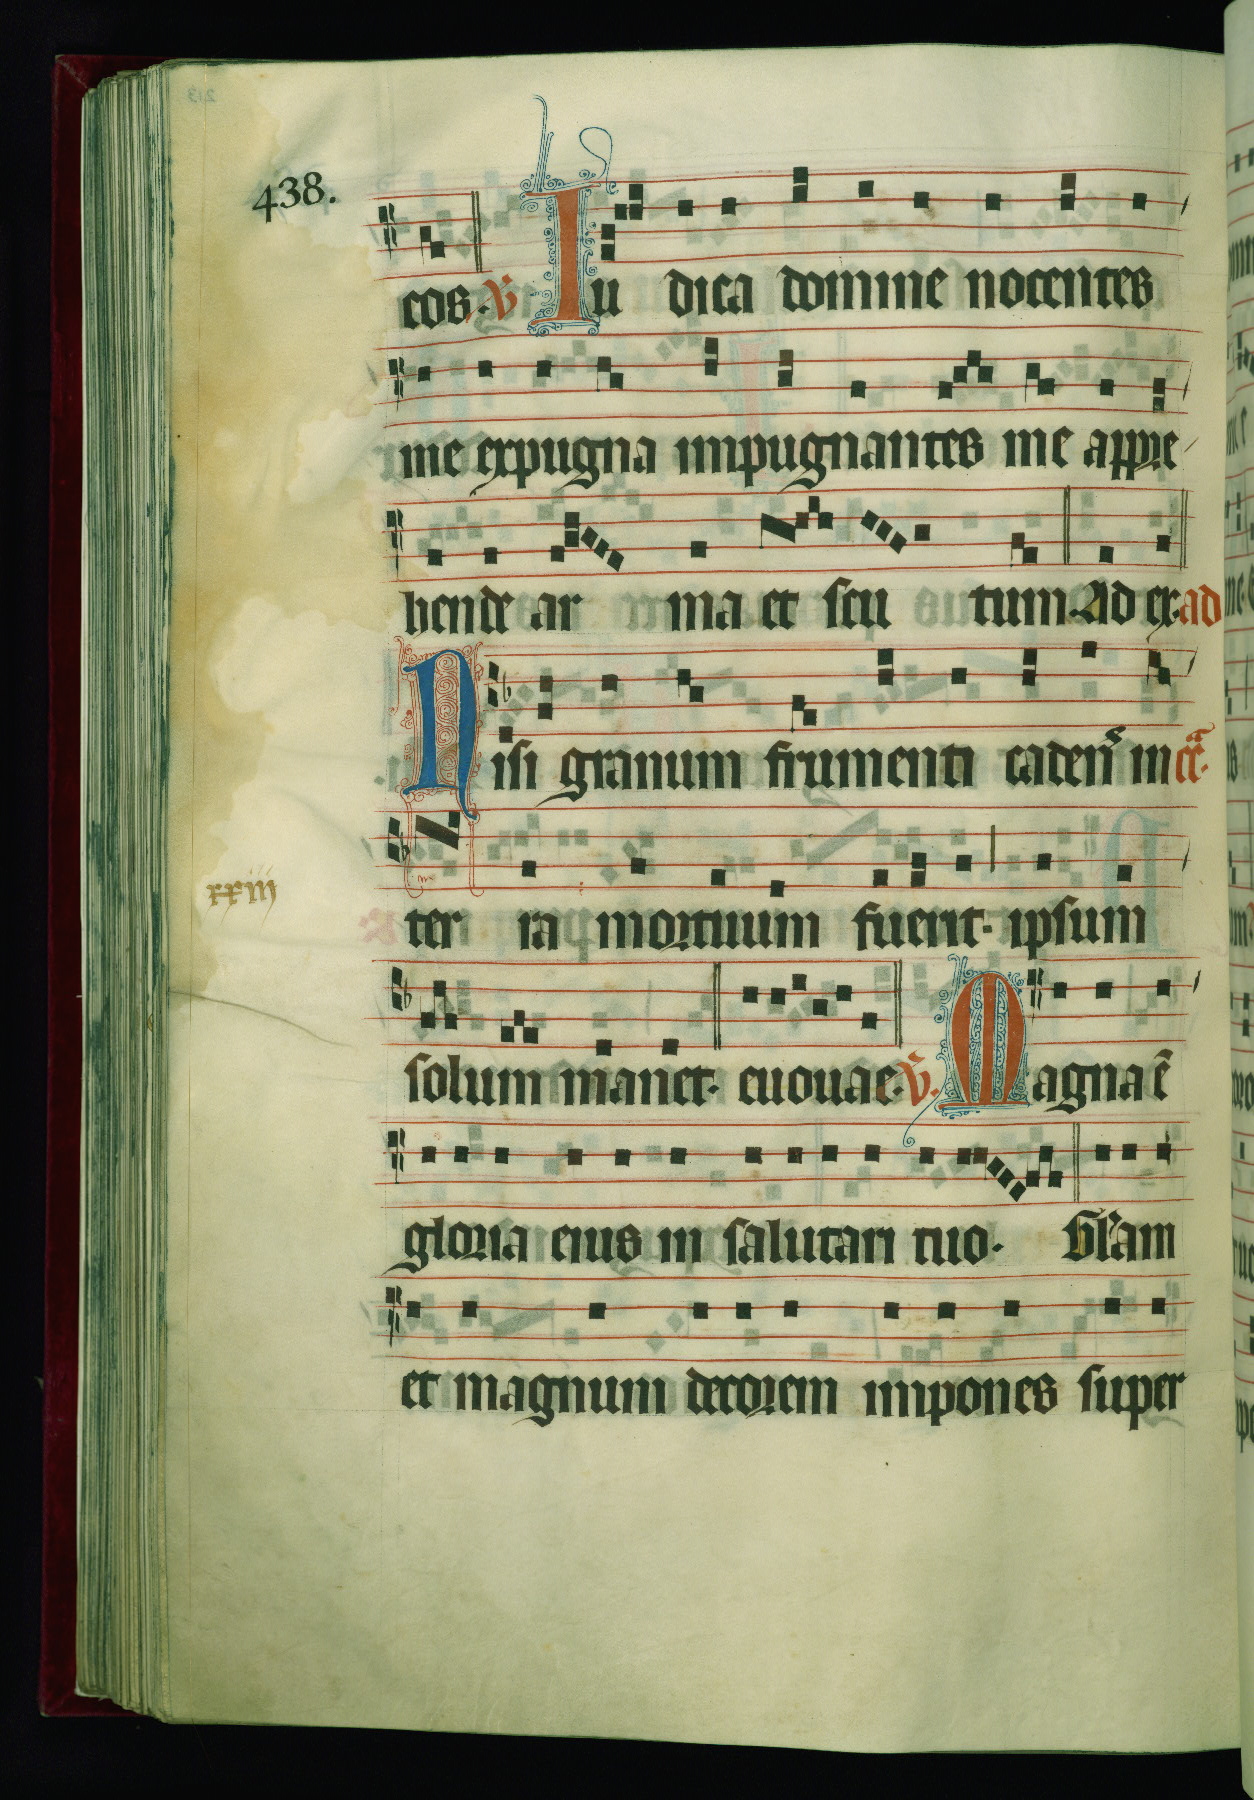 438.
cos. v̄ Iu dica domine nocentes
me expugna impugnantes me appre
hende ar ma et scu tum. Ad ex. ad
Nisi granum frumenti cadens in
ter ra mortuum fuerit. ipsum
xxiii
solum manet. euouae. v̄. Magna ē
gloria eius in salutari tuo. Gl'am
et magnum decorem impones super